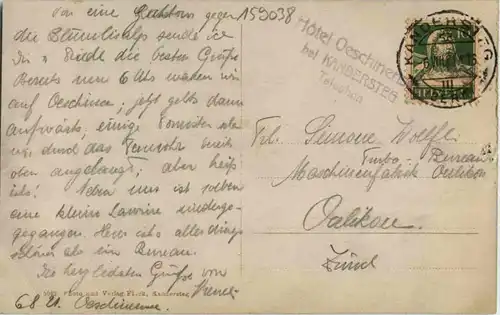 Von eine Gasthaus gegen 159038
die Blümlisalp sende ich
Dir die besten Grüße
Bereits um 6 Uhr waren wir
auf Oeschinen; jetzt gehts dann
aufwärts, einige Touristen
durch das Fernrohr bereits
oben angelangt; aber heiß
ists! Neben uns ist soeben
eine kleine Lawine niederge-
gegangen. Hier ists allerdings
schöner als ein Bureau.
Die herzlichsten Grüße von
6.8.21. Oeschinensee.
Photo und Verlag Kandersteg
Hôtel Oeschinensee
bei KANDERSTEG
Telephon
KANDERSTEG
HELVETIA
Frl. Simone Wolff
Turbo-Bureau
Maschinenfabrik Oerlikon
Oerlikon.
Zürich